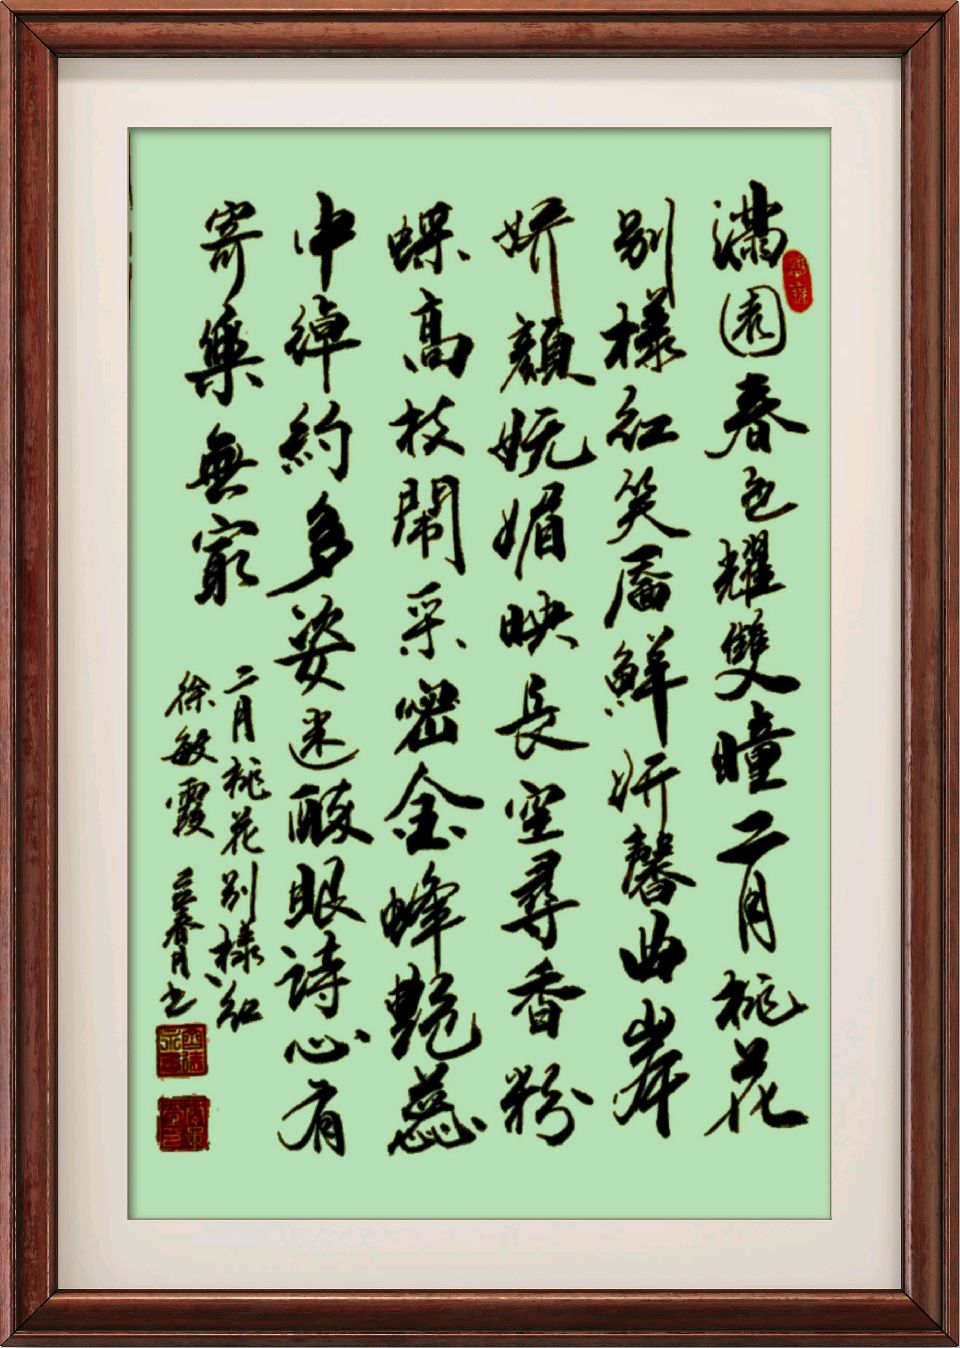 滿園春色耀雙瞳二月桃花
別樣紅笑靨鮮妍馨曲岸
娇顏妩媚映長空尋香粉
蝶高枝鬧采密金蜂艷蕊
中綽約多姿迷醉眼詩心有
寄樂無窮
二月桃花別樣紅
徐敏霞 春月書